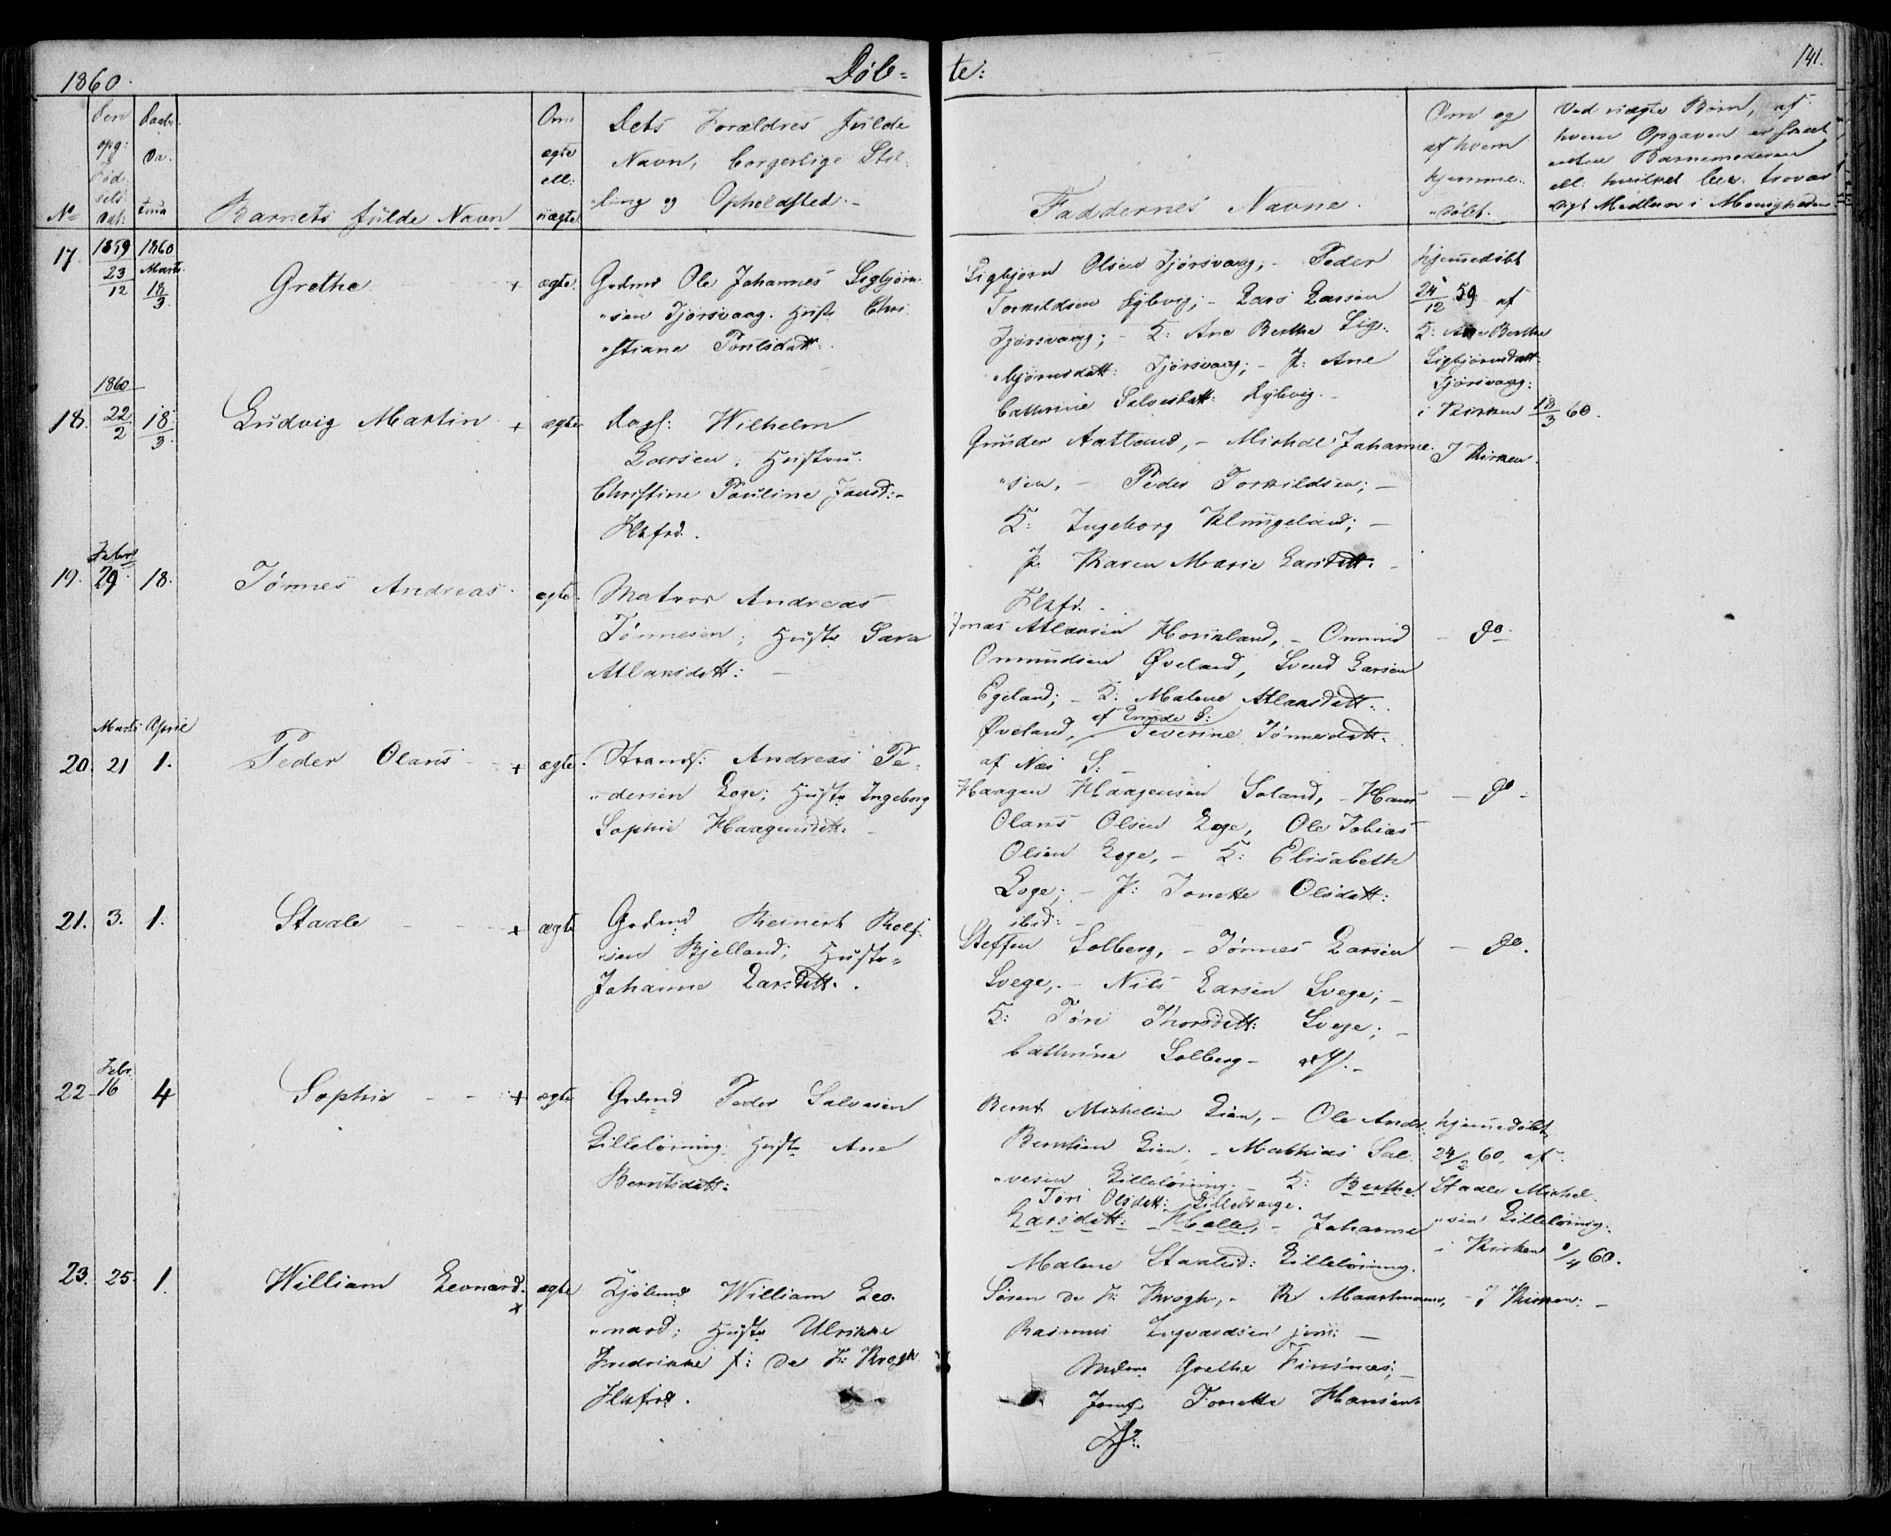 1860.
Døb=
te:
141.
No
Den opg: Føds. Dat:
Daabs Da. tum
Barnets fulde Navn
Om ægte ell: uægte
Dets Forældres fulde
Navn, borgerlige Stil-
ling og Opholdsted.
Faddernes Navne.
Om og
af hvem
hjemme-
døbt.
Ved uægte Børn, af
hvem Opgaven er skeet
enten Barnemoderen
ell: hvilket
Medlem i Menigheden
17. 1859 23/12 1860 Marts 18/3
Grethe + ægte
Grdmd Ole Johannes Sigbjørn-
sen Tjørsvaag. Hustr Chri-
stiane Poulsdatt.
Sigbjørn Olsen Tjørsvaag; - Peder
Torkildsen - Lars Larsen
Tjørsvaag; - K: Ane Berthe Sig-
bjørnsdatt: Tjørsvaag; P: Ane
Cathrine Salvesdatt:
hjemmedøbt
24/12 59 af
K: Ane Berthe
Sigbjørnsdatt
Tjørsvaag:
i Kirken 18/3 60.
18. 1860 22/2 18/3
Ludvig Martin + ægte
Dagl: Wilhelm
Larsen, Hustru
Christine Pauline Jansd: -
Flkfrd.
Gunder Aatland, - Michal Johanne-
sen, - Peder Torkildsen; -
K: Ingeborg Klungeland; -
P: Karen Marie Larsdatt. -
Flkfr. -
I Kirken.
19. Febr 29. 18.
Tønnes Andreas ægte
Matros Andreas
Tønnesen; Hustr Sara
Atlaksdatt: -
Jonas Atlaksen - Omund
Omundsen Øveland, Svend Larsen
Egeland; - K: Malene Atlaksdatt:
Øveland, af S: Severine Tønnesdatt.
af Næs S: -
- do.
20. Marts 21 April 1.
Peder Olaus + ægte
Strands: Andreas Pe-
dersen Loge; Hustr Ingeborg
Sophie Haagensdatt:
Haagen Haagensen Soland, - Hans
Olaus Olsen Loge, Ole Tobias
Olsen Loge, - K: Elisabeth
Loge; - P: Tonette Olsdatt:
ibid: -
- do -
21. 3. 1.
Staale + ægte
Grdmd Reinert Rolf-
sen Bjelland; Hustr
Johanne Larsdatt.
Steffen Solberg, - Tønnes Larsen
Svege, - Nils Larsen Svege; -
K: Tøri Thorsdatt: Svege; -
Cathrine Solberg -
- do.
22. Febr 16 4
Sophie + ægte
Grdmd Peder Salvesen
Lilleløning. Hustr Ane
Berntsdatt:
Bernt Michelsen Lien, - Ole Andr.
Berntsen Lien, - Mathias Sal-
vesen Lilleløning. - K: Berthe
Tøri Olsdatt:
Larsdatt: Halle, - Johanne
Malene Staalesd: Lilleløning.
hjemmedøbt
24/2 60, af
Staale Michel-
sen Lilleløning.
i Kirken 1/4 60.
23. 25. 1.
William Leonard + ægte
Kjøbmd William Leo-
nard; Hustr Ulrikke
Fredrikke f: de F: Krogh
Flkfrd.
Søren de F: Krogh, - Maartmann,
Rasmus Ingvardsen jun: -
Mdm Grethe Finsnæs; -
Jomf. Tonette Hansen
- I Kirken: -